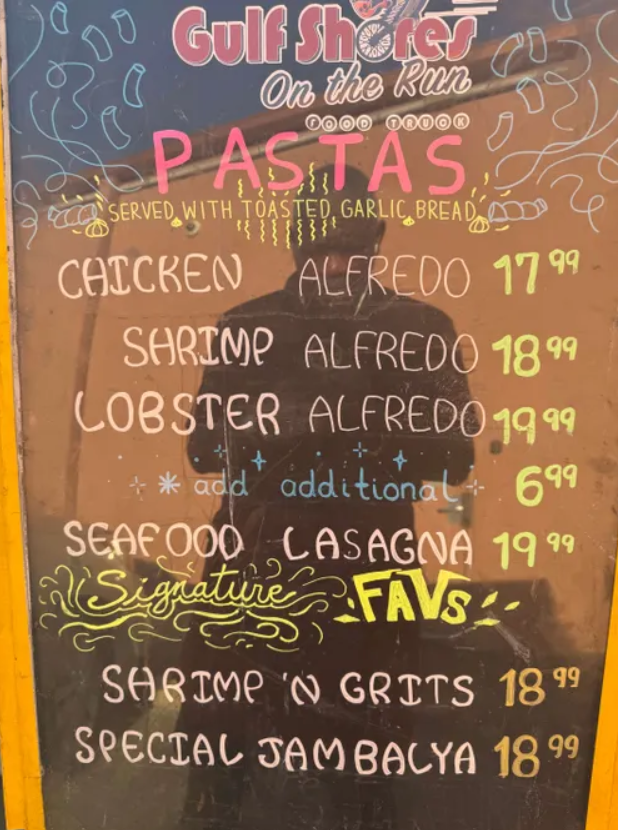 Gulf Shores
On the Run
FOOD TRUCK
PASTAS
SERVED WITH TOASTED GARLIC BREAD
CHICKEN ALFREDO 17 99
SHRIMP ALFREDO 18 99
LOBSTER ALFREDO 19 99
* add additional 6 99
SEAFOOD LASAGNA 19 99
Signature FAVS
SHRIMP 'N GRITS 18 99
SPECIAL JAMBALYA 18 99